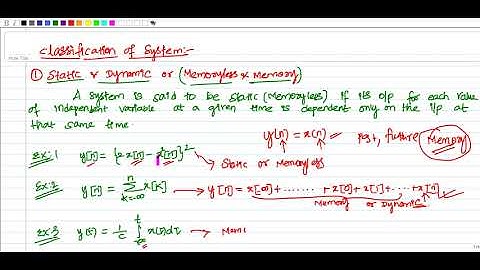 Classification of System:-
① Static & Dynamic or (Memoryless & Memory)
A system is said to be static (Memoryless) if its o/p for each value
of independent variable at a given time is dependent only on the i/p at
that same time.
y[n] = x(n) past, future Memory
Ex:1 y[n] = {2x[n] - x²[n]}² → Static or Memoryless
Ex:2 y[n] = Σ x[k] n k=-∞ → y[n] = x[-∞] + ....... + x[0] + x[1] + .. + x[n]
Memory or Dynamic
Ex:3 y(t) = 1/C ∫ x(τ)dτ t -∞ → Mem